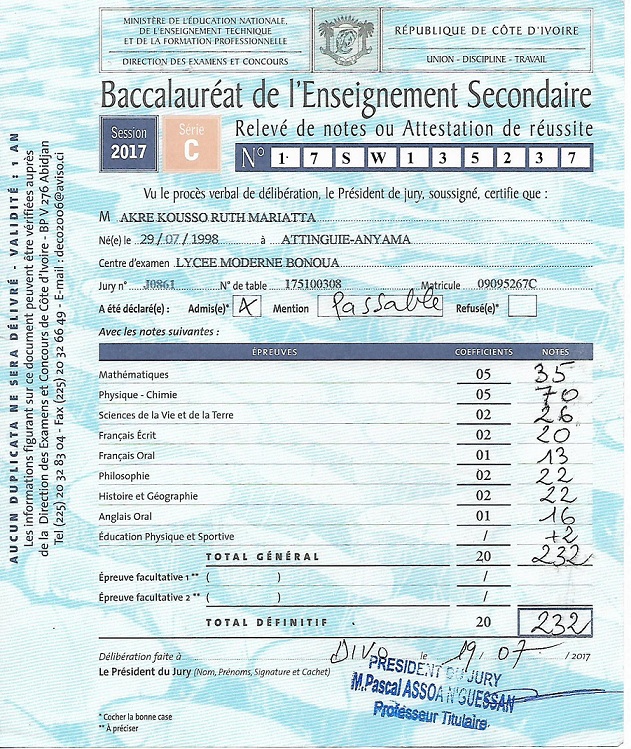 MINISTÈRE DE L'ÉDUCATION NATIONALE,
DE L'ENSEIGNEMENT TECHNIQUE
ET DE LA FORMATION PROFESSIONNELLE
DIRECTION DES EXAMENS ET CONCOURS
RÉPUBLIQUE DE CÔTE D'IVOIRE
UNION - DISCIPLINE - TRAVAIL
Baccalauréat de l'Enseignement Secondaire
Session 2017
Série C
Relevé de notes ou Attestation de réussite
N° 1 7 S W 1 3 5 2 3 7
Vu le procès verbal de délibération, le Président de jury, soussigné, certifie que :
M AKRE KOUSSO RUTH MARIATTA
Né(e) le 29/07/1998 à ATTINGUIE-ANYAMA
Centre d'examen LYCEE MODERNE BONOUA
Jury n° J0861 N° de table 175100308 Matricule 09095267C
A été déclaré(e) : Admis(e)* X Mention Passable Refusé(e)*
Avec les notes suivantes :
ÉPREUVES COEFFICIENTS NOTES
Mathématiques 05 35
Physique - Chimie 05 70
Sciences de la Vie et de la Terre 02 26
Français Écrit 02 20
Français Oral 01 13
Philosophie 02 22
Histoire et Géographie 02 22
Anglais Oral 01 16
Éducation Physique et Sportive / +2
TOTAL GÉNÉRAL 20 232
Épreuve facultative 1 ** ( ) /
Épreuve facultative 2 ** ( ) /
TOTAL DÉFINITIF 20 232
Délibération faite à DIVO le 19/07 / 2017
Le Président du Jury (Nom, Prénoms, Signature et Cachet)
PRESIDENT DU JURY
M. Pascal ASSOA N'GUESSAN
Professeur Titulaire
* Cocher la bonne case
** À préciser
AUCUN DUPLICATA NE SERA DÉLIVRÉ - VALIDITÉ : 1 AN
Les informations figurant sur ce document peuvent être vérifiées auprès
de la Direction des Examens et Concours de Côte d'Ivoire - BP V 276 Abidjan
Tel (225) 20 32 83 04 - Fax (225) 20 32 66 49 - E-mail : deco2006@aviso.ci